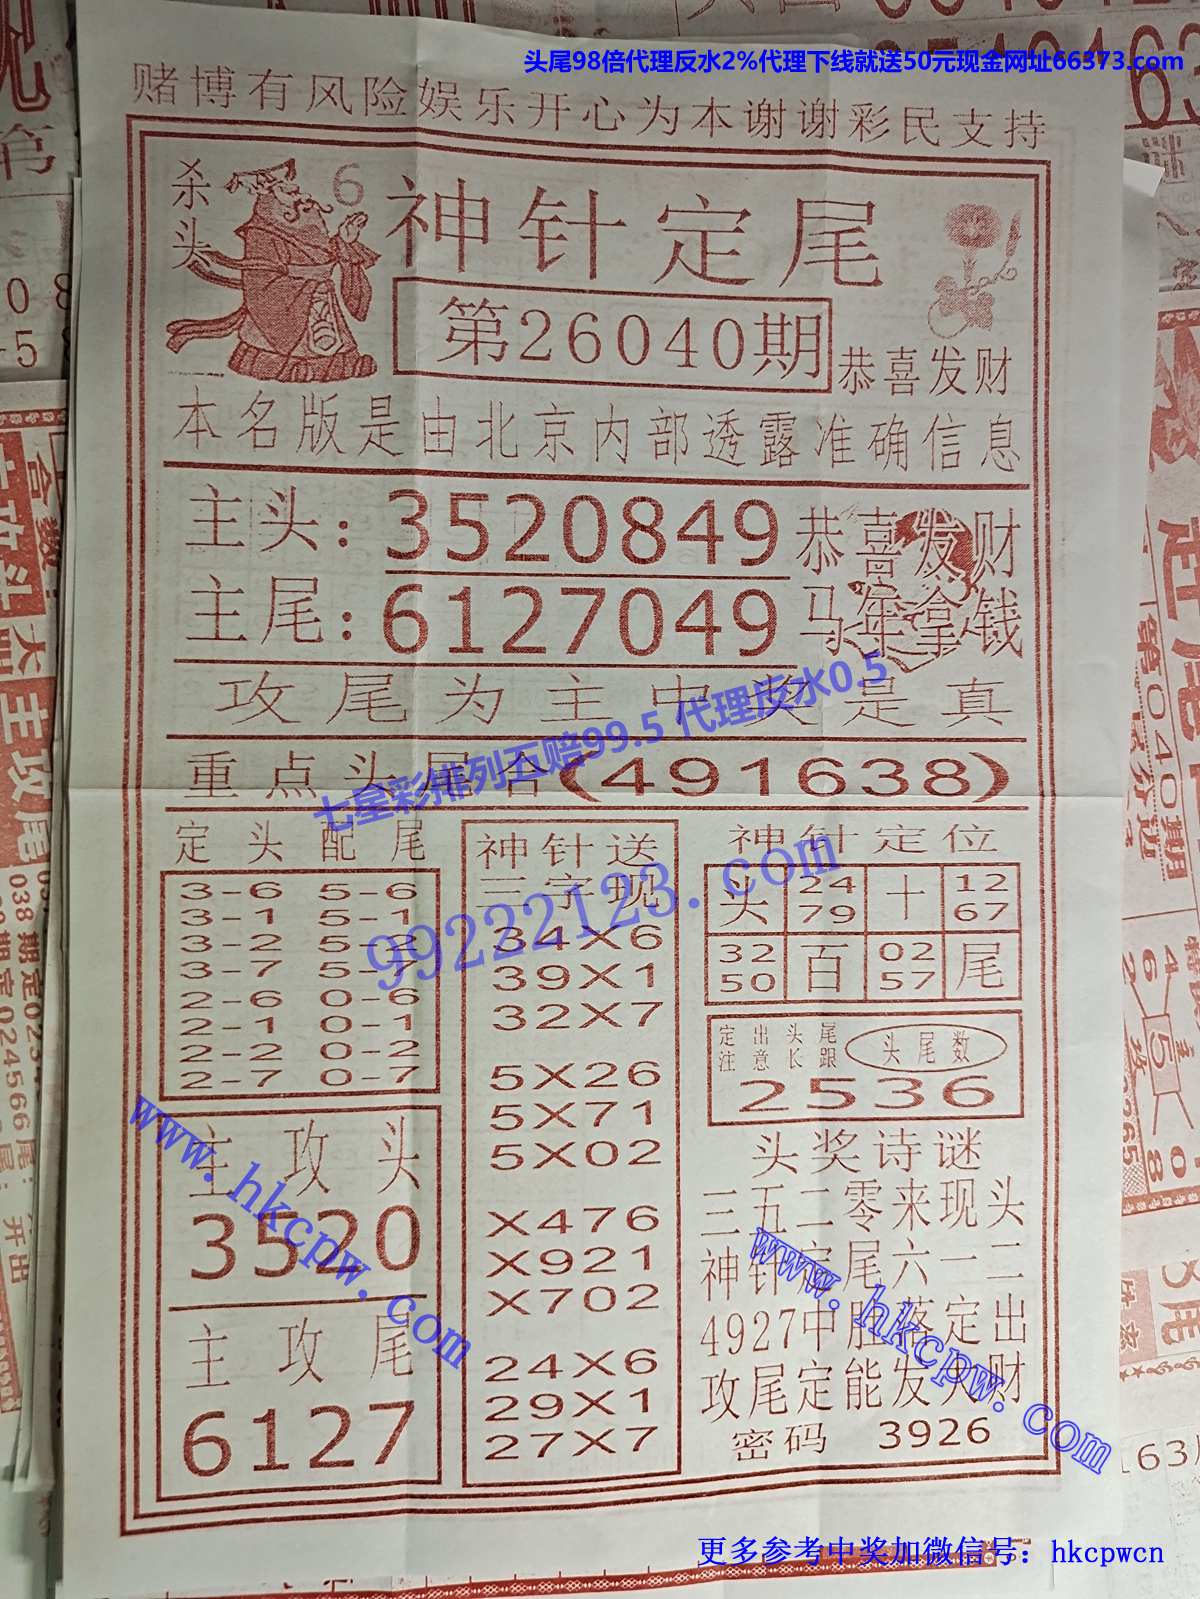 头尾98倍代理反水2%代理下线就送50元现金网址66373.com
赌博有风险娱乐开心为本谢谢彩民支持
杀头 6
神针定尾
第26040期
恭喜发财
本名版是由北京内部透露准确信息
主头：3520849 恭喜发财
主尾：6127049 马年拿钱
攻尾为主中奖是真
七星彩排列五赔99.5 代理反水0.5
重点头尾合(491638)
定头配尾
3-6 5-6
3-1 5-1
3-2 5-2
3-7 5-7
2-6 0-6
2-1 0-1
2-2 0-2
2-7 0-7
主攻头
3520
主攻尾
6127
神针送
三字现
34X6
39X1
32X7
5X26
5X71
5X02
X476
X921
X702
24X6
29X1
27X7
99222123.com
神针定位
头 24 十 12
79 67
32 百 02 尾
50 57
定出头尾
注意长跟
头尾数
2536
头奖诗谜
三五二零来现头
神针定尾六一二
4927中肚落定出
攻尾定能发大财
密码 3926
www.hkcpw.com
www.hkcpw.com
更多参考中奖加微信号：hkcpwcn